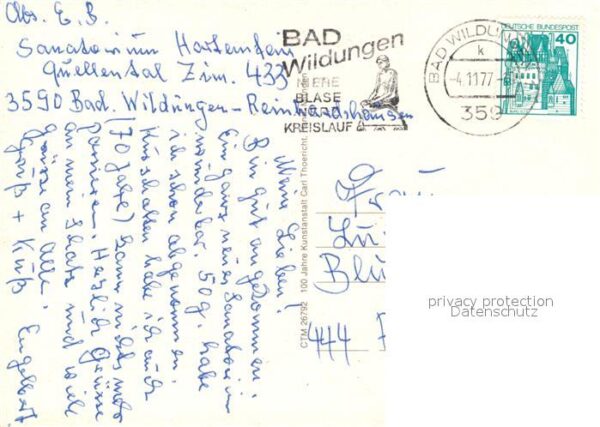 Abs. E. B.
Sanatorium Hartenstein
Quellental Zim. 433
3590 Bad. Wildungen-Reinhardshausen
BAD
Wildungen
NIERE
BLASE
HERZ
KREISLAUF
BAD WILDUN
k
-4.11.77-
359
DEUTSCHE BUNDESPOST
40
Meine Lieben!
Bin gut angekommen.
Ein ganz neues Sanatorium
wunderbar. 50 g. habe
ich schon abgenommen.
Kurschatten habe ich auch
(70 Jahre) kann nichts mehr
passieren. Herzliche Grüsse
an mein Schatz und viele
Grüsse an Alle.
Gruß + Kuß Engelbert
CTM 26792 100 Jahre Kunstanstalt Carl Thoericht,
Frau
Lu
Blu
444
privacy protection
Datenschutz